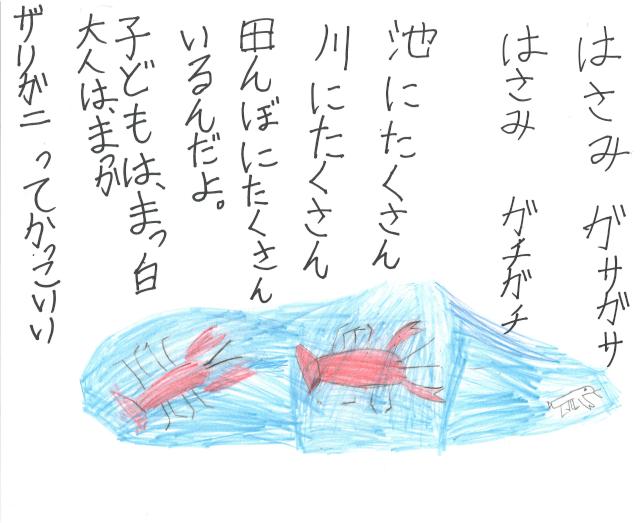 はさみ ガサガサ
はさみ ガチガチ
池にたくさん
川にたくさん
田んぼにたくさん
いるんだよ。
子どもは、まっ白
大人は、まっか
ザリガニってかっこいい